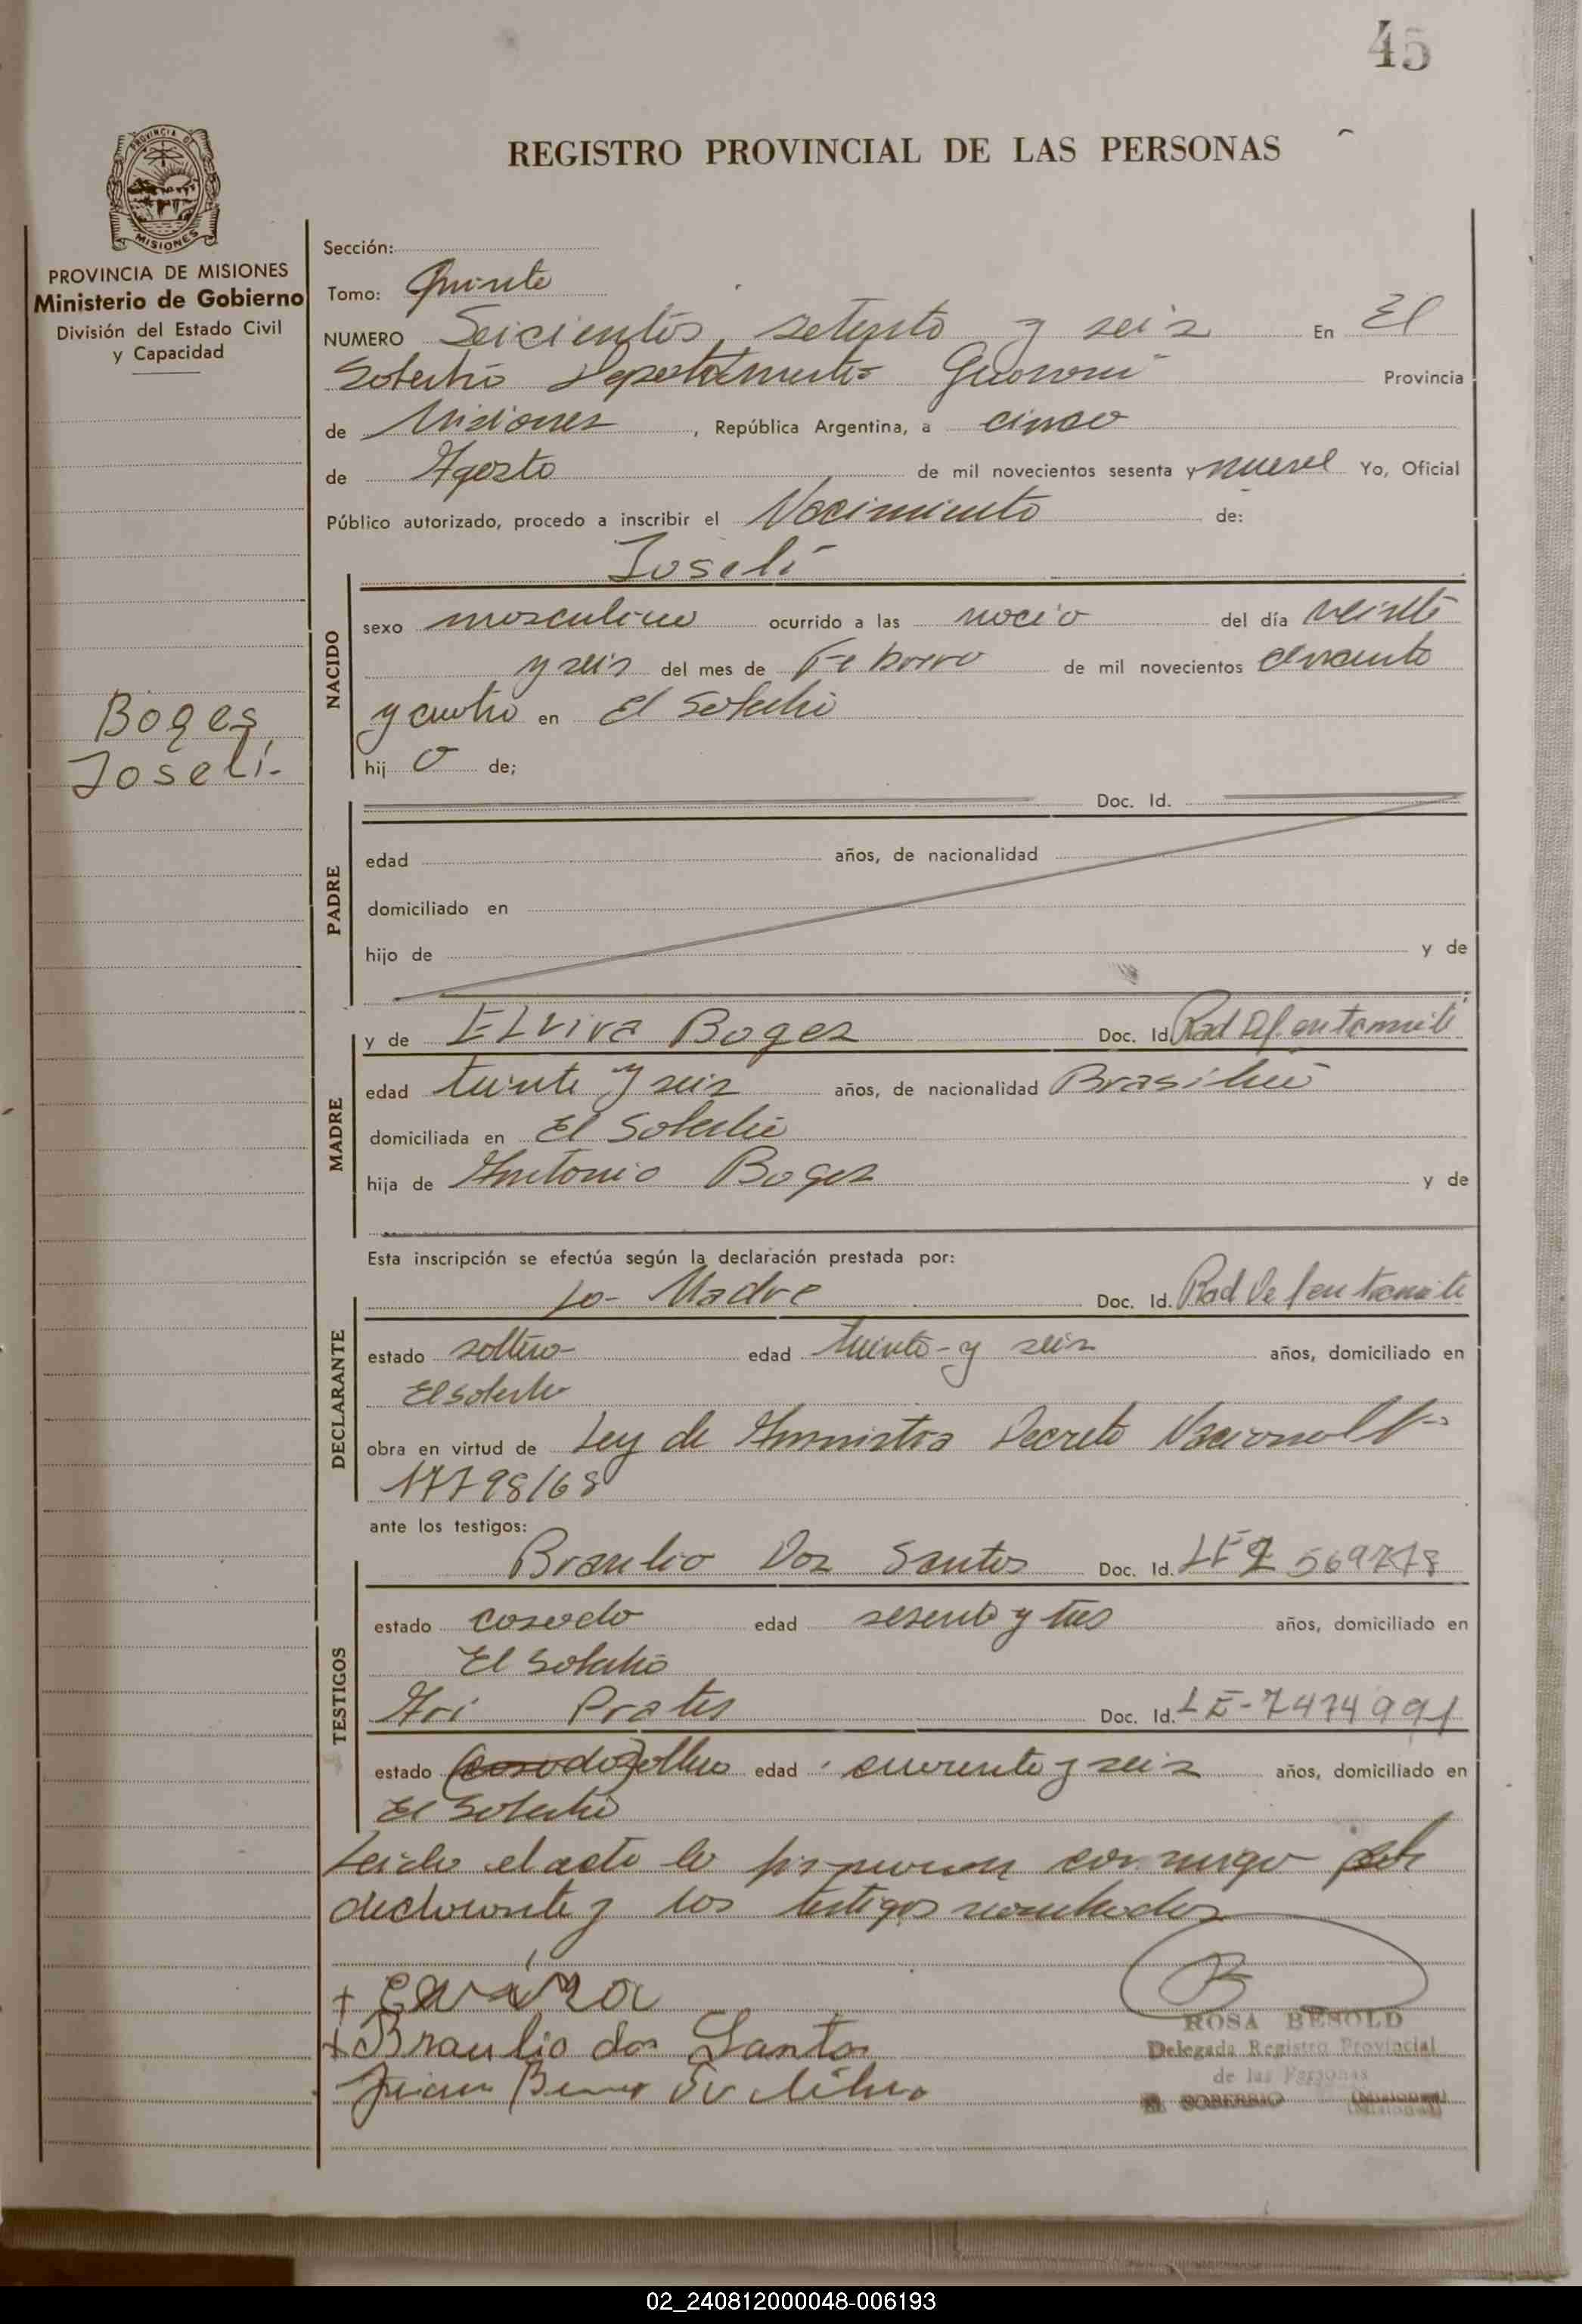 45
REGISTRO PROVINCIAL DE LAS PERSONAS
PROVINCIA DE MISIONES
MISIONES
PROVINCIA DE MISIONES
Ministerio de Gobierno
División del Estado Civil
y Capacidad
Boges
Joselí-
Sección:
Tomo: Quinto
NUMERO Seicientos setenta y seis En El
Soberbio Departamento Guaraní Provincia
de Misiones , República Argentina, a cinco
de Agosto de mil novecientos sesenta y nueve Yo, Oficial
Público autorizado, procedo a inscribir el Nacimiento de:
Joselí
NACIDO
sexo masculino ocurrido a las nació del día veinte
y seis del mes de Febrero de mil novecientos
y cuatro en El Soberbio
hij o de;
PADRE
Doc. Id.
edad años, de nacionalidad
domiciliado en
hijo de y de
MADRE
y de Elvira Boges Doc. Id. Rad
edad treinta y seis años, de nacionalidad Brasileña
domiciliada en El Soberbio
hija de Antonio Boges y de
Esta inscripción se efectúa según la declaración prestada por:
DECLARANTE
la Madre Doc. Id. Rad
estado soltera edad treinta y seis años, domiciliado en
El Soberbio
obra en virtud de Ley de Amnistía Decreto Nacional Nº
17798/68
ante los testigos:
TESTIGOS
Braulio Dos Santos Doc. Id. LE 569778
estado casado edad sesenta y tres años, domiciliado en
El Soberbio
Ari Prates Doc. Id. LE-7474991
estado (casado) soltero edad cuarenta y seis años, domiciliado en
El Soberbio
Leída el acta la firmaron conmigo
declarante y los testigos nombrados
+ Braulio dos Santos
Juan
ROSA BESOLD
Delegada Registro Provincial
de las Personas
EL SOBERBIO (Misiones)
02_240812000048-006193